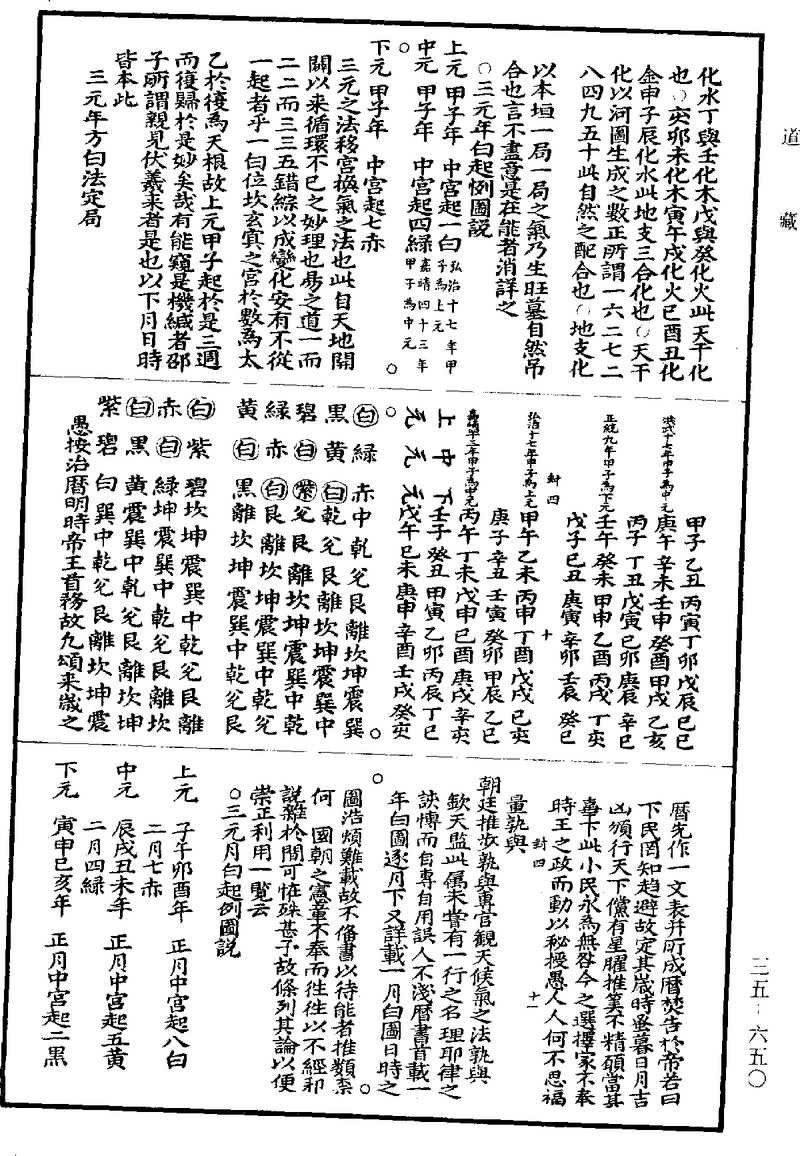 道藏
化水丁與壬化木戊與癸化火此天干化
也○亥卯未化木寅午戌化火巳酉丑化
金申子辰化水此地支三合化也○天干
化以河圖生成之數正所謂一六二七三
八四九五十此自然之配合也○地支化
以本垣一局一局之氣乃生旺墓自然吊
合也言不盡意是在能者消詳之
○三元年白起例圖說
上元 甲子年 中宮起一白 弘治十七年甲子為上元
中元 甲子年 中宮起四綠 嘉靖四十三年甲子為中元
下元 甲子年 中宮起七赤
三元之法移宮換氣之法也此自天地開
闢以來循環不已之妙理也易之道一而
二二而三三五錯綜以成變化安有不從
一起者乎一曰位坎玄冥之宮於數為太
乙於後為天根故上元甲子起於是三週
而復歸於是妙矣哉有能窺是機緘者邵
子所謂親見伏羲來者是也以下月日時
皆本此
三元年方白法定局
甲子乙丑丙寅丁卯戊辰己巳
洪武十七年甲子為中元
庚午辛未壬申癸酉甲戌乙亥
丙子丁丑戊寅己卯庚辰辛巳
正統九年甲子為下元
壬午癸未甲申乙酉丙戌丁亥
戊子己丑庚寅辛卯壬辰癸巳
封四 十
弘治十七年甲子為上元
甲午乙未丙申丁酉戊戌己亥
庚子辛丑壬寅癸卯甲辰乙巳
嘉靖四十三年甲子為中元
丙午丁未戊申己酉庚戌辛亥
上中下 壬子癸丑甲寅乙卯丙辰丁巳
元元元 戊午己未庚申辛酉壬戌癸亥
白綠赤中乾兌艮離坎坤震巽
黑黃白乾兌艮離坎坤震巽中
碧白紫兌艮離坎坤震巽中乾
綠赤白艮離坎坤震巽中乾兌
黃白黑離坎坤震巽中乾兌艮
白紫碧坎坤震巽中乾兌艮離
赤白綠坤震巽中乾兌艮離坎
白黑黃震巽中乾兌艮離坎坤
紫碧白巽中乾兌艮離坎坤震
愚按治曆明時帝王首務故九頒來歲之
曆先作一文表并所成曆焚告於帝若曰
下民罔知趨避故定其歲時蚤暮日月吉
凶頒行天下儻有星曜推筭不精碩當其
辜下此小民永為無咎今之選擇家不奉
時王之政而動以秘授愚人人何不思福
封四 十一
量孰與
朝廷推步孰與專官觀天候氣之法孰與
欽天監此屬未嘗有一行之名理耶律之
訣慱而自專自用誤人不淺曆書首載一
年白圖逐月下又詳載一月白圖日時之
圖浩煩難載故不俻書以待能者推類柰
何 國朝之憲章不奉而徃徃以不經邪
說雜於間可恠殊甚予故條列其論以便
崇正利用一覧云
○三元月白起例圖說
上元 子午卯酉年 正月中宮起八白
二月七赤
中元 辰戌丑未年 正月中宮起五黃
二月四綠
下元 寅申巳亥年 正月中宮起二黑
三五·六五〇